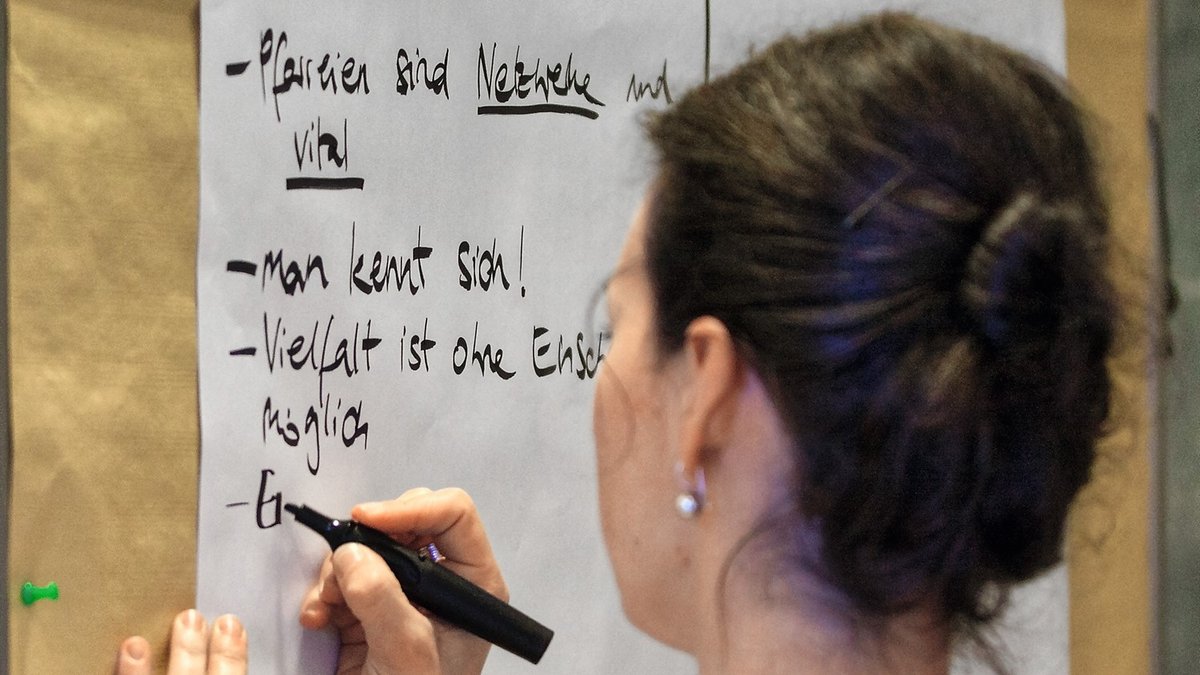 - Pfarreien sind Netzwerke und
vital
- Man kennt sich!
- Vielfalt ist ohne
möglich
-